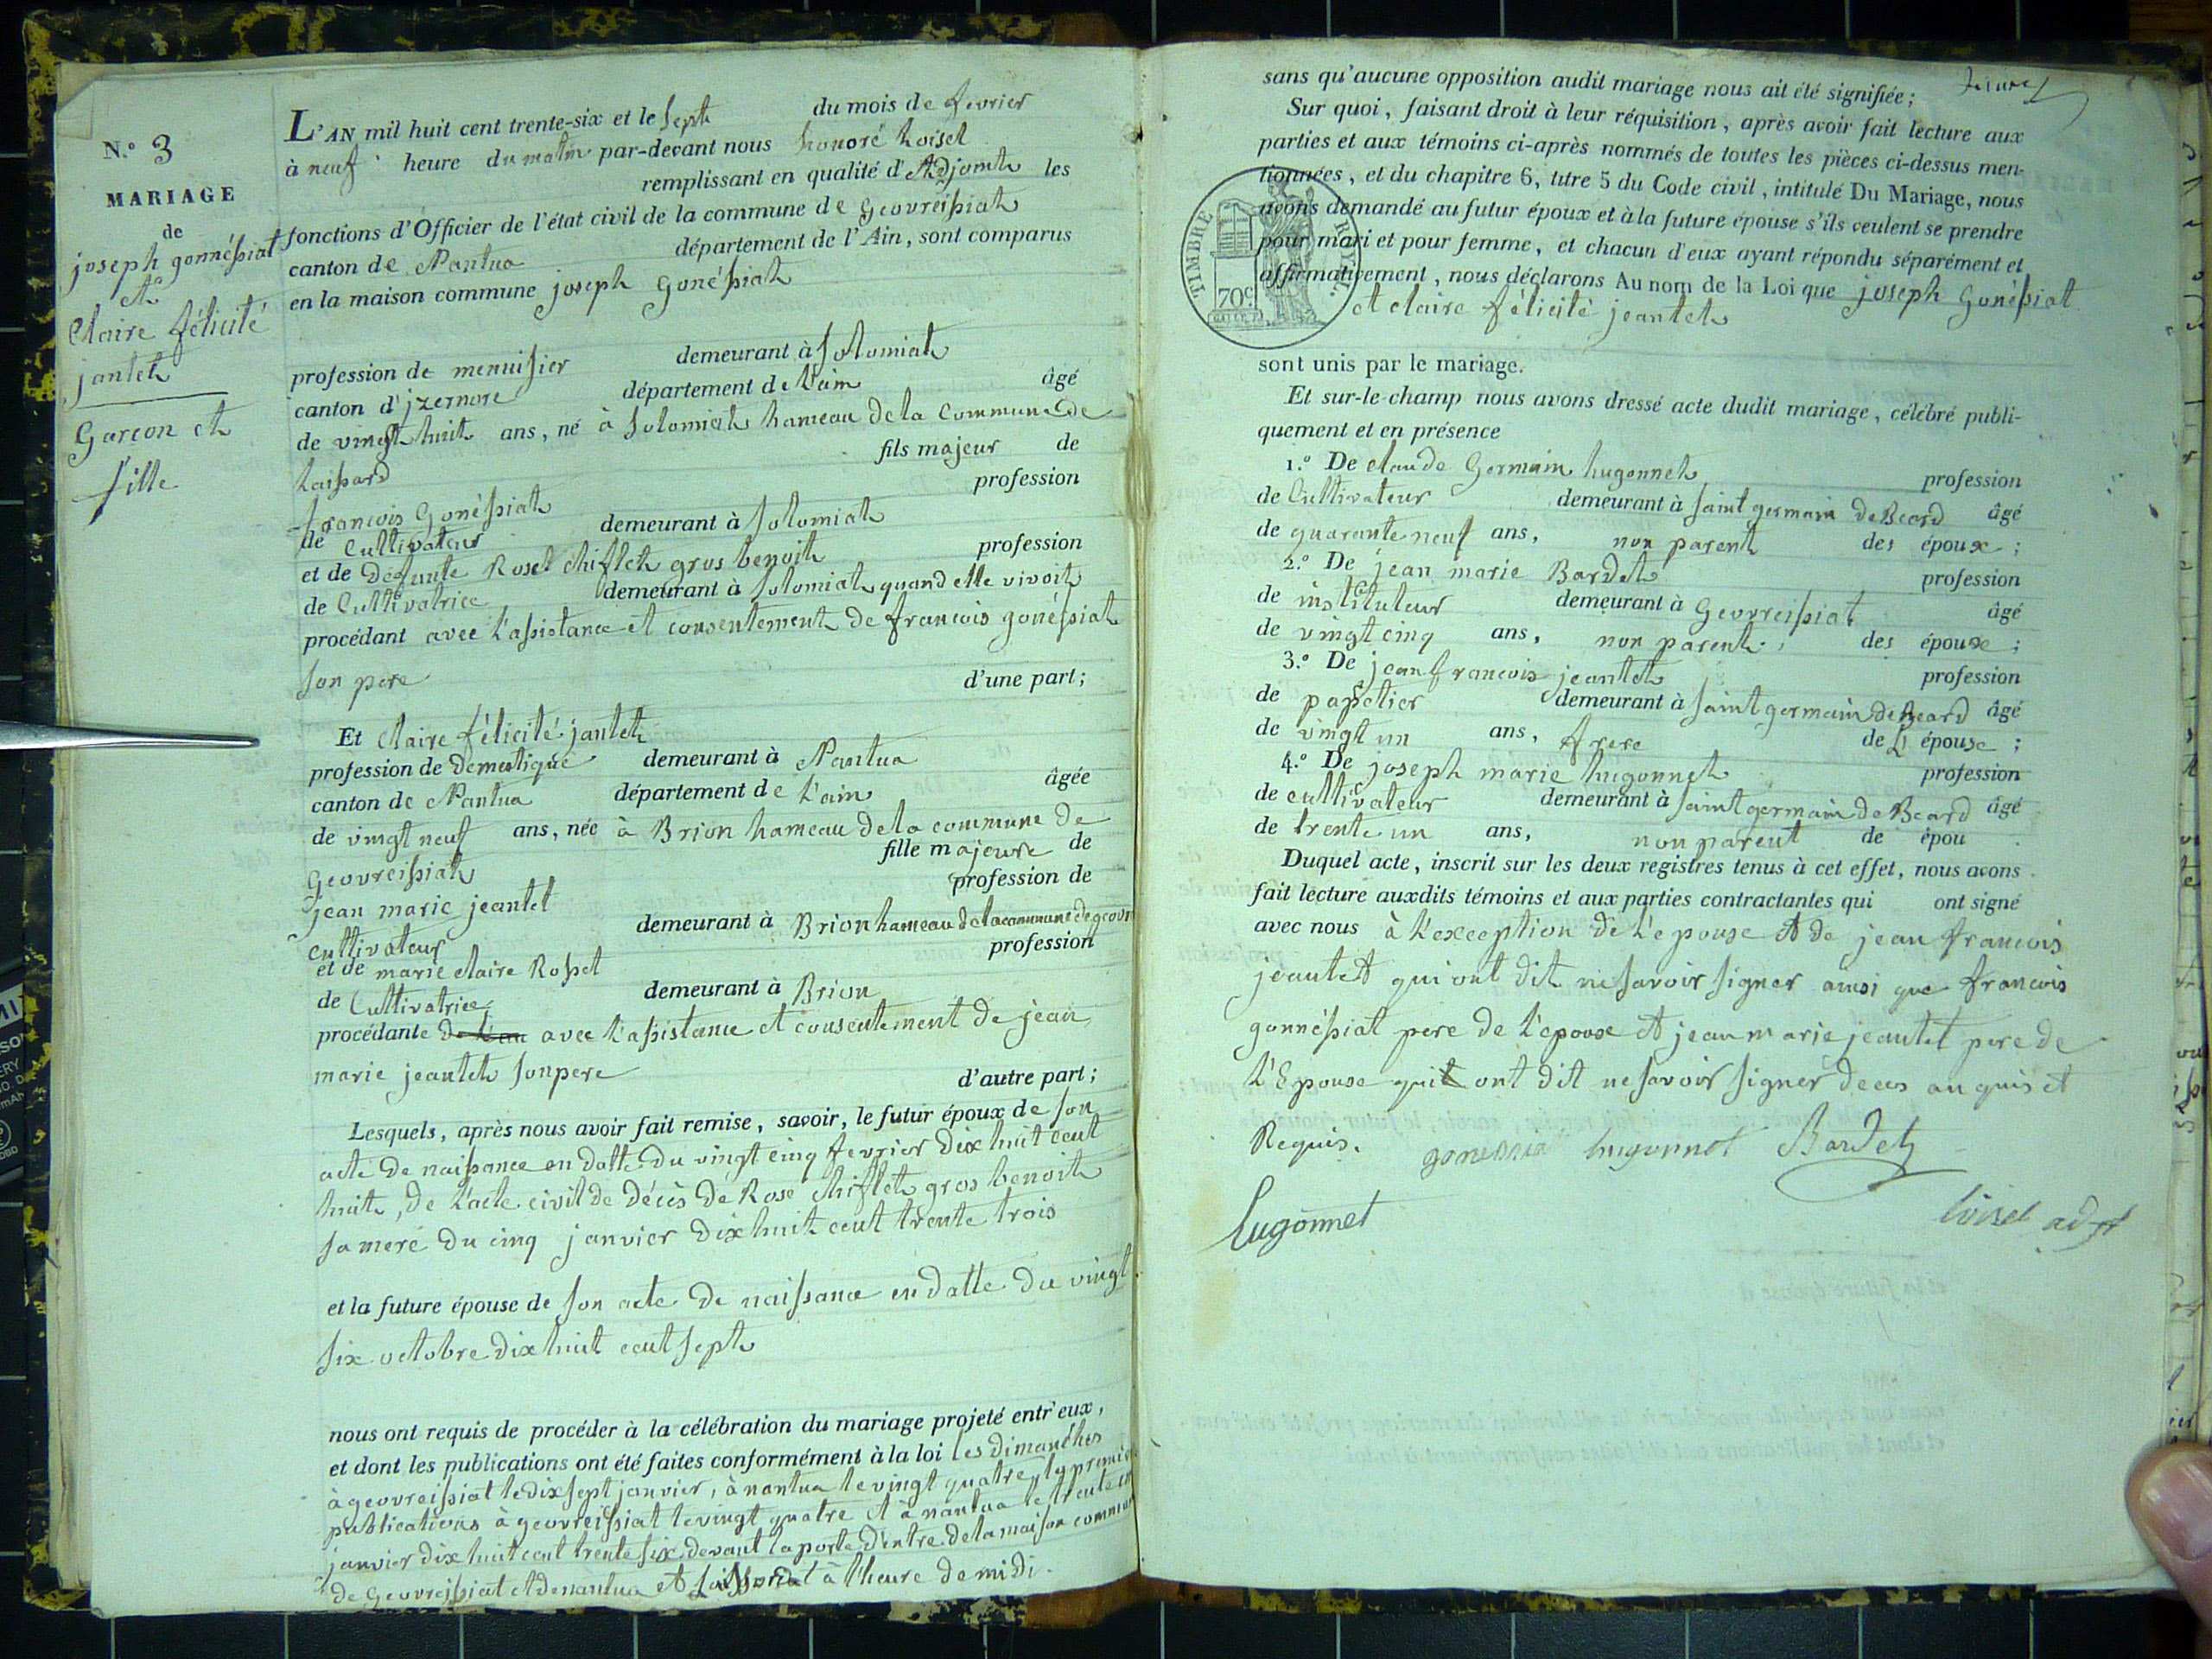 N.º 3
MARIAGE
de
joseph gonnéssiat
et
Claire félicité
jantet
Garçon et
fille
L'AN mil huit cent trente-six et le sept du mois de fevrier
à neuf heure du matin par-devant nous honoré loisel
remplissant en qualité d'Adjoint les
fonctions d'Officier de l'état civil de la commune de geovreissiat
canton de Nantua département de l'Ain, sont comparus
en la maison commune joseph Gonéssiat
profession de menuisier demeurant à solomiat
canton d'jzernore département de l'ain âgé
de vingt huit ans, né à solomiat hameau de la Commune de
fils majeur de
laissard
françois Gonéssiat profession
de Cultivateur demeurant à solomiat
et de défunte Rosel chifflet gros benoit profession
de Cultivatrice demeurant à solomiat quand elle vivoit
procédant avec l'assistance et consentement de françois gonéssiat
son pere d'une part;
Et Claire félicité jantet
profession de domestique demeurant à Nantua
canton de Nantua département de l'ain âgée
de vingt neuf ans, née à Brion hameau de la commune de
Geovreissiat fille majeure de
jean marie jeantet profession de
cultivateur demeurant à Brion hameau de la commune de geovr
et de marie claire Rosset profession
de Cultivatrice demeurant à Brion
procédante avec l'assistance et consentement de jean
marie jeantet son pere d'autre part;
Lesquels, après nous avoir fait remise, savoir, le futur époux de son
acte de naissance en datte du vingt cinq fevrier dix huit cent
huit, de l'acte civil de décès de Rose chifflet gros benoit
sa mere du cinq janvier dix huit cent trente trois
et la future épouse de son acte de naissance en datte du vingt
six octobre dix huit cent sept
nous ont requis de procéder à la célébration du mariage projeté entr'eux,
et dont les publications ont été faites conformément à la loi les dimanches
à geovreissiat le dix sept janvier, à nantua le vingt quatre
publications à geovreissiat le vingt quatre et à nantua le trente et
janvier dix huit cent trente six devant la porte d'entre de la maison commun
de Geovreissiat et de nantua et à l'heure de midi.
sans qu'aucune opposition audit mariage nous ait été signifiée;
Sur quoi, faisant droit à leur réquisition, après avoir fait lecture aux
parties et aux témoins ci-après nommés de toutes les pièces ci-dessus men-
tionnées, et du chapitre 6, titre 5 du Code civil, intitulé Du Mariage, nous
avons demandé au futur époux et à la future épouse s'ils veulent se prendre
pour mari et pour femme, et chacun d'eux ayant répondu séparément et
affirmativement, nous déclarons Au nom de la Loi que joseph Gonéssiat
et claire félicité jeantet
TIMBRE ROYAL.
70c
sont unis par le mariage.
Et sur-le-champ nous avons dressé acte dudit mariage, célébré publi-
quement et en présence
1.º De claude Germain hugonnet profession
de Cultivateur demeurant à saint germain de Beard âgé
de quarante neuf ans, non parent des époux;
2.º De jean marie Bardet profession
de instituteur demeurant à Geovreissiat âgé
de vingt cinq ans, non parent des époux;
3.º De jean françois jeantet profession
de papetier demeurant à saint germain de Beard âgé
de vingt un ans, frere de L'épouse;
4.º De joseph marie hugonnet profession
de cultivateur demeurant à saint germain de Beard âgé
de trente un ans, non parent de épou
Duquel acte, inscrit sur les deux registres tenus à cet effet, nous avons
fait lecture auxdits témoins et aux parties contractantes qui ont signé
avec nous à l'exception de l'epouse et de jean françois
jeantet qui ont dit ne savoir signer ainsi que françois
gonnéssiat pere de l'epoux et jean marie jeantet pere de
l'Epouse qui ont dit ne savoir signer de ces en quis et
Requis.
gonessia hugonnet Bardet
hugonnet
loisel adjt